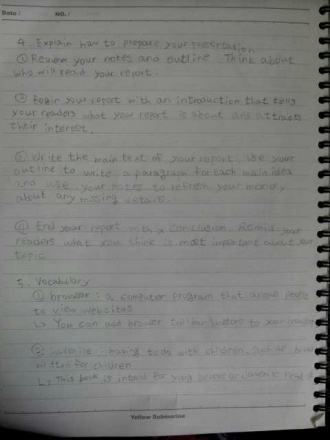 Date : NO. :
4. Explain how to prepare your presentation
① Review your notes and outline. Think about
who will read your report.
② Begin your report with an introduction that tells
your readers what your report is about and attracts
their interest.
③ Write the main text of your report. Use your
outline to write a paragraph for each main idea
and use your notes to refresh your memory
about any missing details.
④ End your report with a conclusion. Remind your
readers what you think is most important about your
topic.
5. Vocabulary
① browser : a computer program that people
to view websites
↳ You can add browser to your
② : having to do with children, such as
written for children
↳ This book is intend for young or
Yellow Submarine